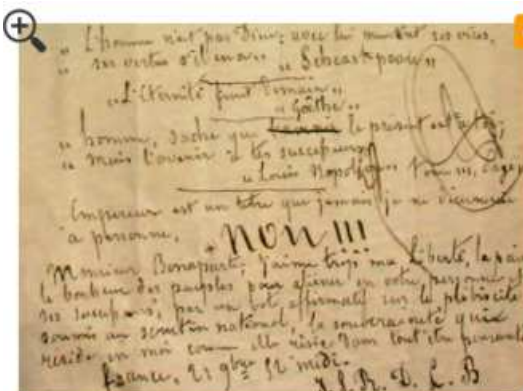 " L'homme n'est pas Dieu; avec lui meurent ses vices,
" ses vertus s'il en a " " Scheaskpeare "
" L'Eternité finit Demain "
" Goëthe "
" homme, sache que le présent est à toi,
" mais l'avenir à tes successeurs
" Louis Napoléon
Empereur est un titre que jamais je ne décernerai
à personne. NON !!!
Monsieur Bonaparte, j'aime trop ma liberté, la paix
le bonheur des peuples pour aliéner en votre personne,
ses successeurs, par un vote affirmatif sur le plébiscite
soumis au scrutin national, la souveraineté qui
réside en moi comme elle réside dans tout être pensant
France, 21 9bre 52 midi.
J. L. B. D. C. B